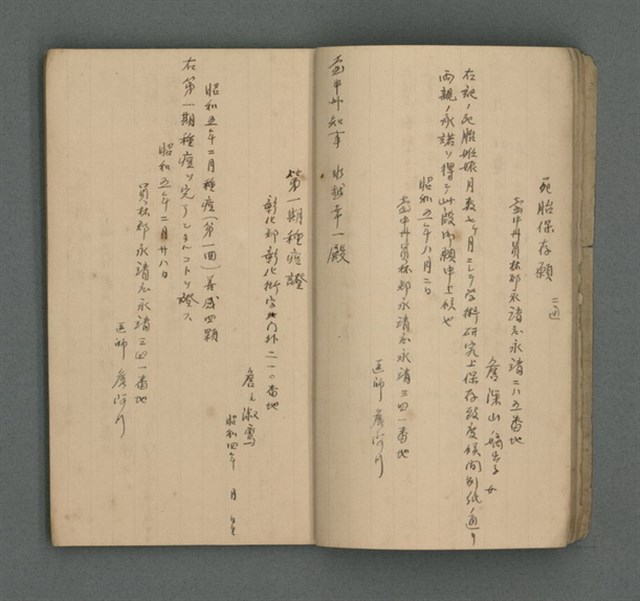 死胎保存願 二通
台中州員林郡永靖庄永靖二八五番地
詹深山 嫡出子 女
右記ノ死胎妊娠月数七ヶ月ニシテ学術研究上保存致度候間別紙ノ通リ
両親ノ承諾ヲ得テ此段御願申上候也
昭和五年八月二日
台中州員林郡永靖庄永靖三四一番地
医師 詹阿川
台中州知事 水越幸一殿
第一期種痘證
彰化郡彰化街字北門外二一〇番地
詹氏淑鸞
昭和四年 月 生
昭和五年二月種痘(第一回)善感四顆
右第一期種痘ヲ完了シタルコトヲ證ス
昭和五年二月廿八日
員林郡永靖庄永靖三四一番地
医師 詹阿川